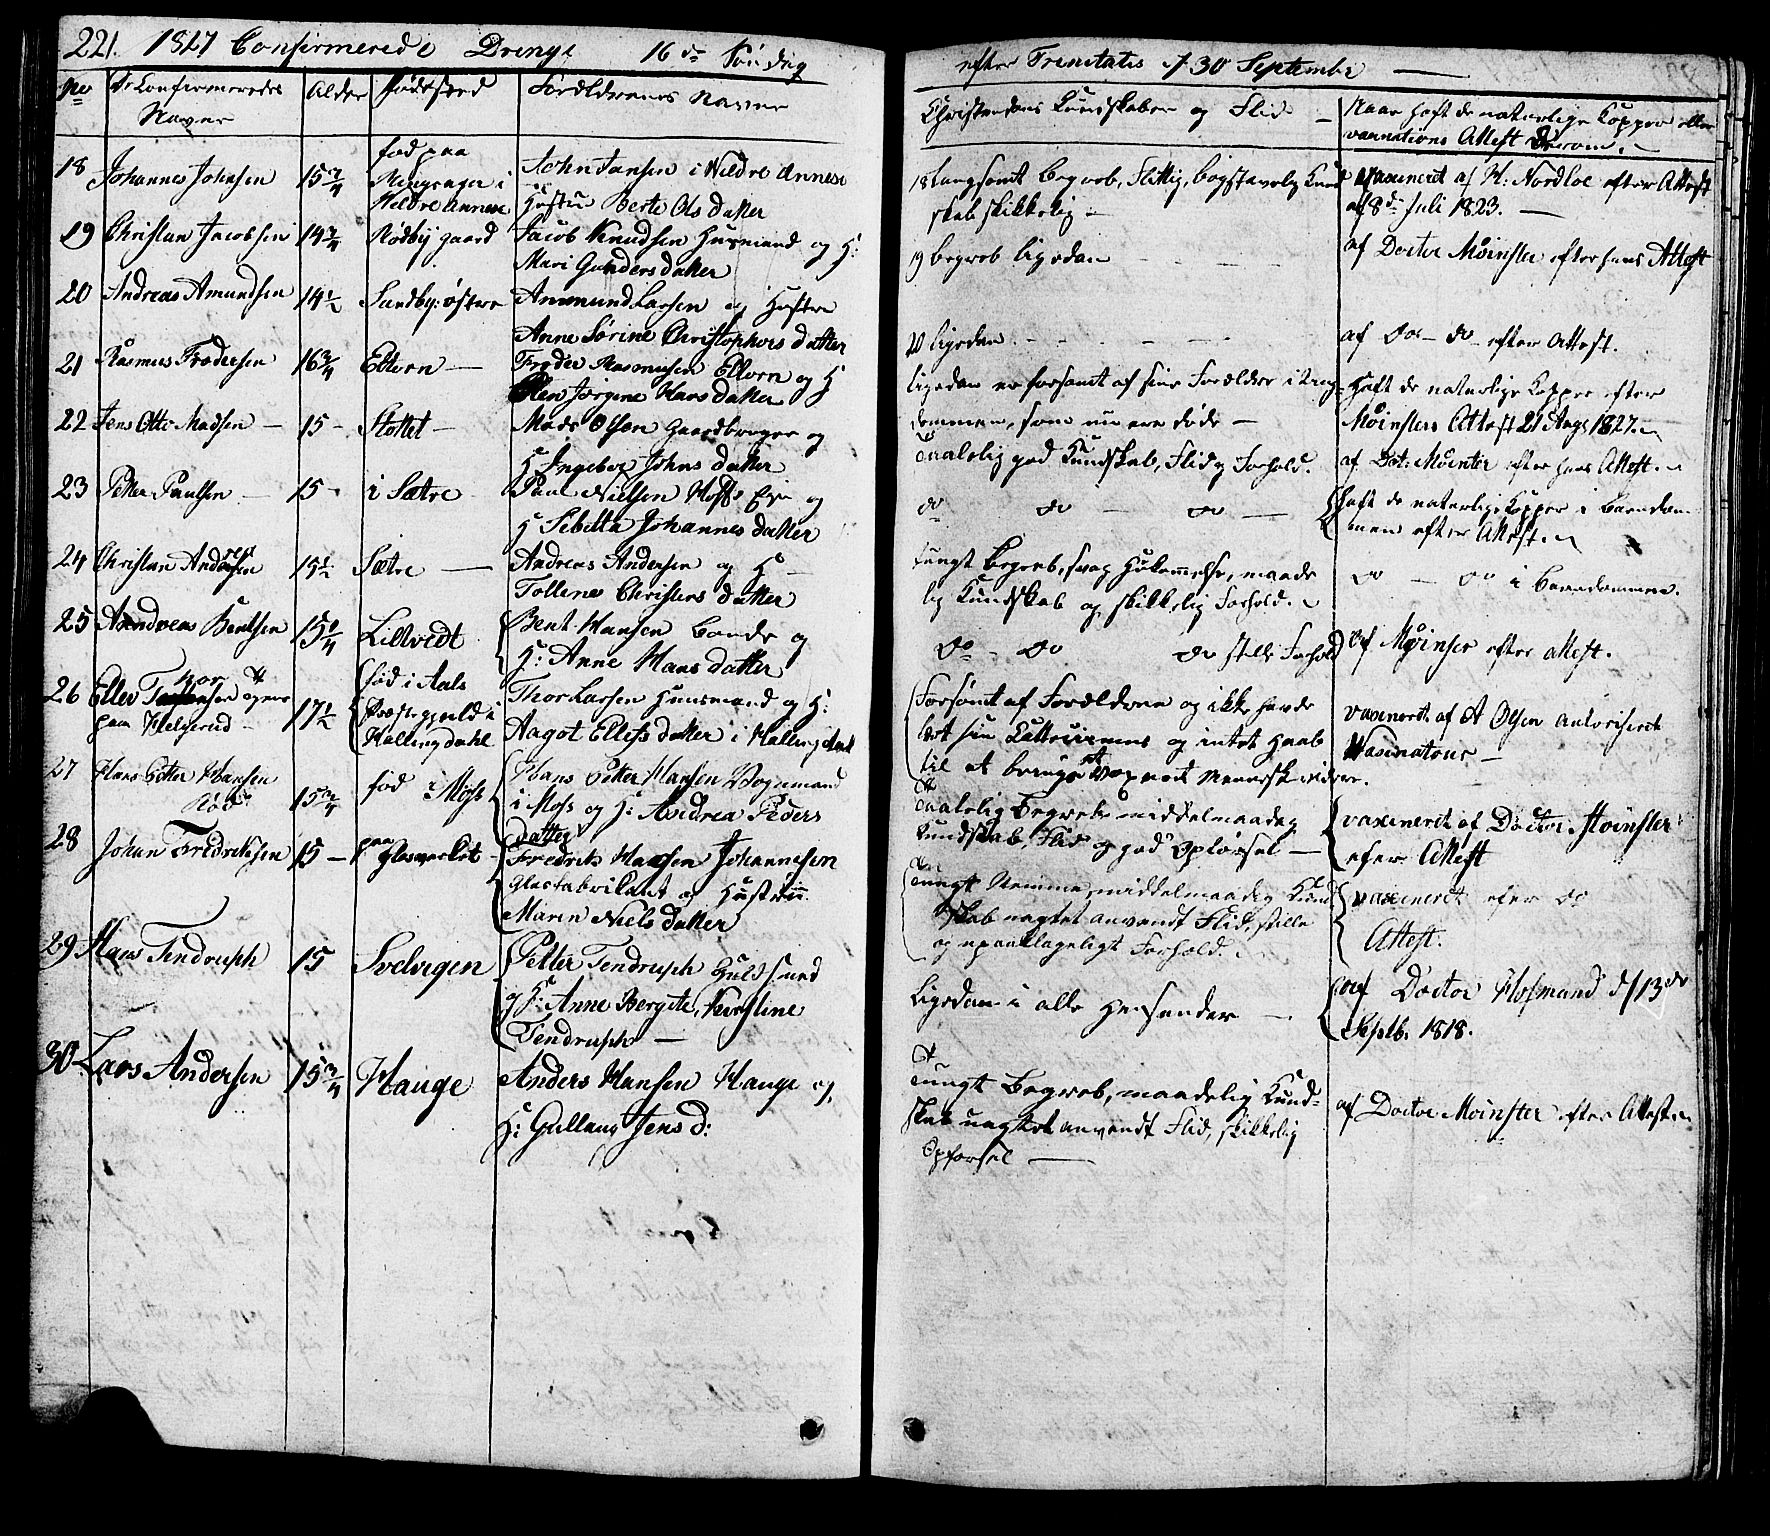 221. 1827 Confirmerede Drenge 16de Søndag
efter Trenitatis d 30 September
No
de Confirmeredes
Navne
Alder
Fødested
Forældrenes Navne
Christendoms Kundskaber og Flid
Naar haft de naturlige Kopper eller
vaccnations Attest derom.
18
Johannes Johnsen
15 3/4
fød paa
i
Nedre Annese
John Jansen i Nedre Annese
Hustru Berte Olsdatter
18 Langsomt Begreb, Flittig, bogstavelig Kund
skab skikkelig
vaxineret af H: Nordloe efter Attest
af 8de Juli 1823.
19
Christian Jacobsen
14 3/4
Rødby gaard
Jacob Knudsen Husmand og H:
Mari Gundersdatter
19 begreb ligedan
af Doctor Møinster efter hans Attest
20
Andreas Amundsen
14 1/2
Sandby: østere
Ammund Larsen og Hustru
Anne Sørine Christophersdatter
20 ligedan
af do do efter Attest.
21
Rasmus Frodersen
16 3/4
Eltorn
Froder Rasmusen Eltorn og H
Olen Jørgine Hansdatter
ligedan er forsømt af sine Forældre i Ung-
dommen, som nu ere døde
Haft de naturlige Kopper efter
Møinsters Attest 21 Aug: 1827.
22
Jens Otto Madsen
15
Slottet
Mads Olsen Gaardbruger og
H Ingebor Johnsdatter
Taalelig god Kundskab, Flid og Forhold.
af Doc: Møinter efter hans Attest.
23
Petter Paulsen
15
i Sætre
Paul Nielsen Hoffs Eje og
H Sibilla Johannesdatter
do do do
haft de naturlige Kopper i barndom
men efter Attest.
24
Christian Andersen
15 1/2
Sætre
Andreas Andersen og H
Tolline Christensdatter
tungt Begreb, svag Hukommelse, maade
lig Kundskab og skikkelig Forhold.
do do i barndommen.
25
Andreas Bentsen
15 1/4
Lillvedt
Bent Hansen Bonde og
H: Anne Hansdatter
do do do stille Forhold
af Møinser efter attest.
26
Ellev Thorsen
paa Helgerud
17 1/2
fød i Aals
Præstegjeld i
Hallingdahl
Thor Larsen Huusmand og H:
Aagot Ellefsdatter i Hallingdahl
Forsømt af Forældrene og ikke havde
lært sin Cattecismus og intet Haab
til at bringe et voxent Menneske videre.
vaxineret af A Olsen autoriseret
Vaxinatour
27
Hans Petter Hansen
Rød
15 3/4
fød i Moss
Hans Petter Hansen Vognmand
i Moss og H: Andrea Peders
datter
Taalelig Begreb middelmaadig
Kundskab, Flid og god Opførsel
vaxineret af Doctor Møinster
efter Attest
28
Johan Fredriksen
15
paa
Glasverket
Fredrik Hansen Johannesen
Glasfabrikant og Hustru
Maren Nielsdatter
tungt Nemme, middelmaadig Kund
skab uagtet anvendt Flid, stille
og upaaklageligt Forhold.
vaxineret efter do
Attest.
29
Hans Tendruph
15
Svelvigen
Petter Tendruph Guldsmed
og H: Anne Bergite, Kirstine
Tendruph
Ligedan i alle Henseender
af Doctor Hofmand d/13de
Septb. 1818.
30
Lars Andersen
15 3/4
Hauge
Anders Hansen Hauge og
H: Gullaug Jens d:
tungt Begreb, maadelig Kund-
skab uagtet anvendt Flid, skikkelig
Opførsel
af Doctor Møinster efter Attest